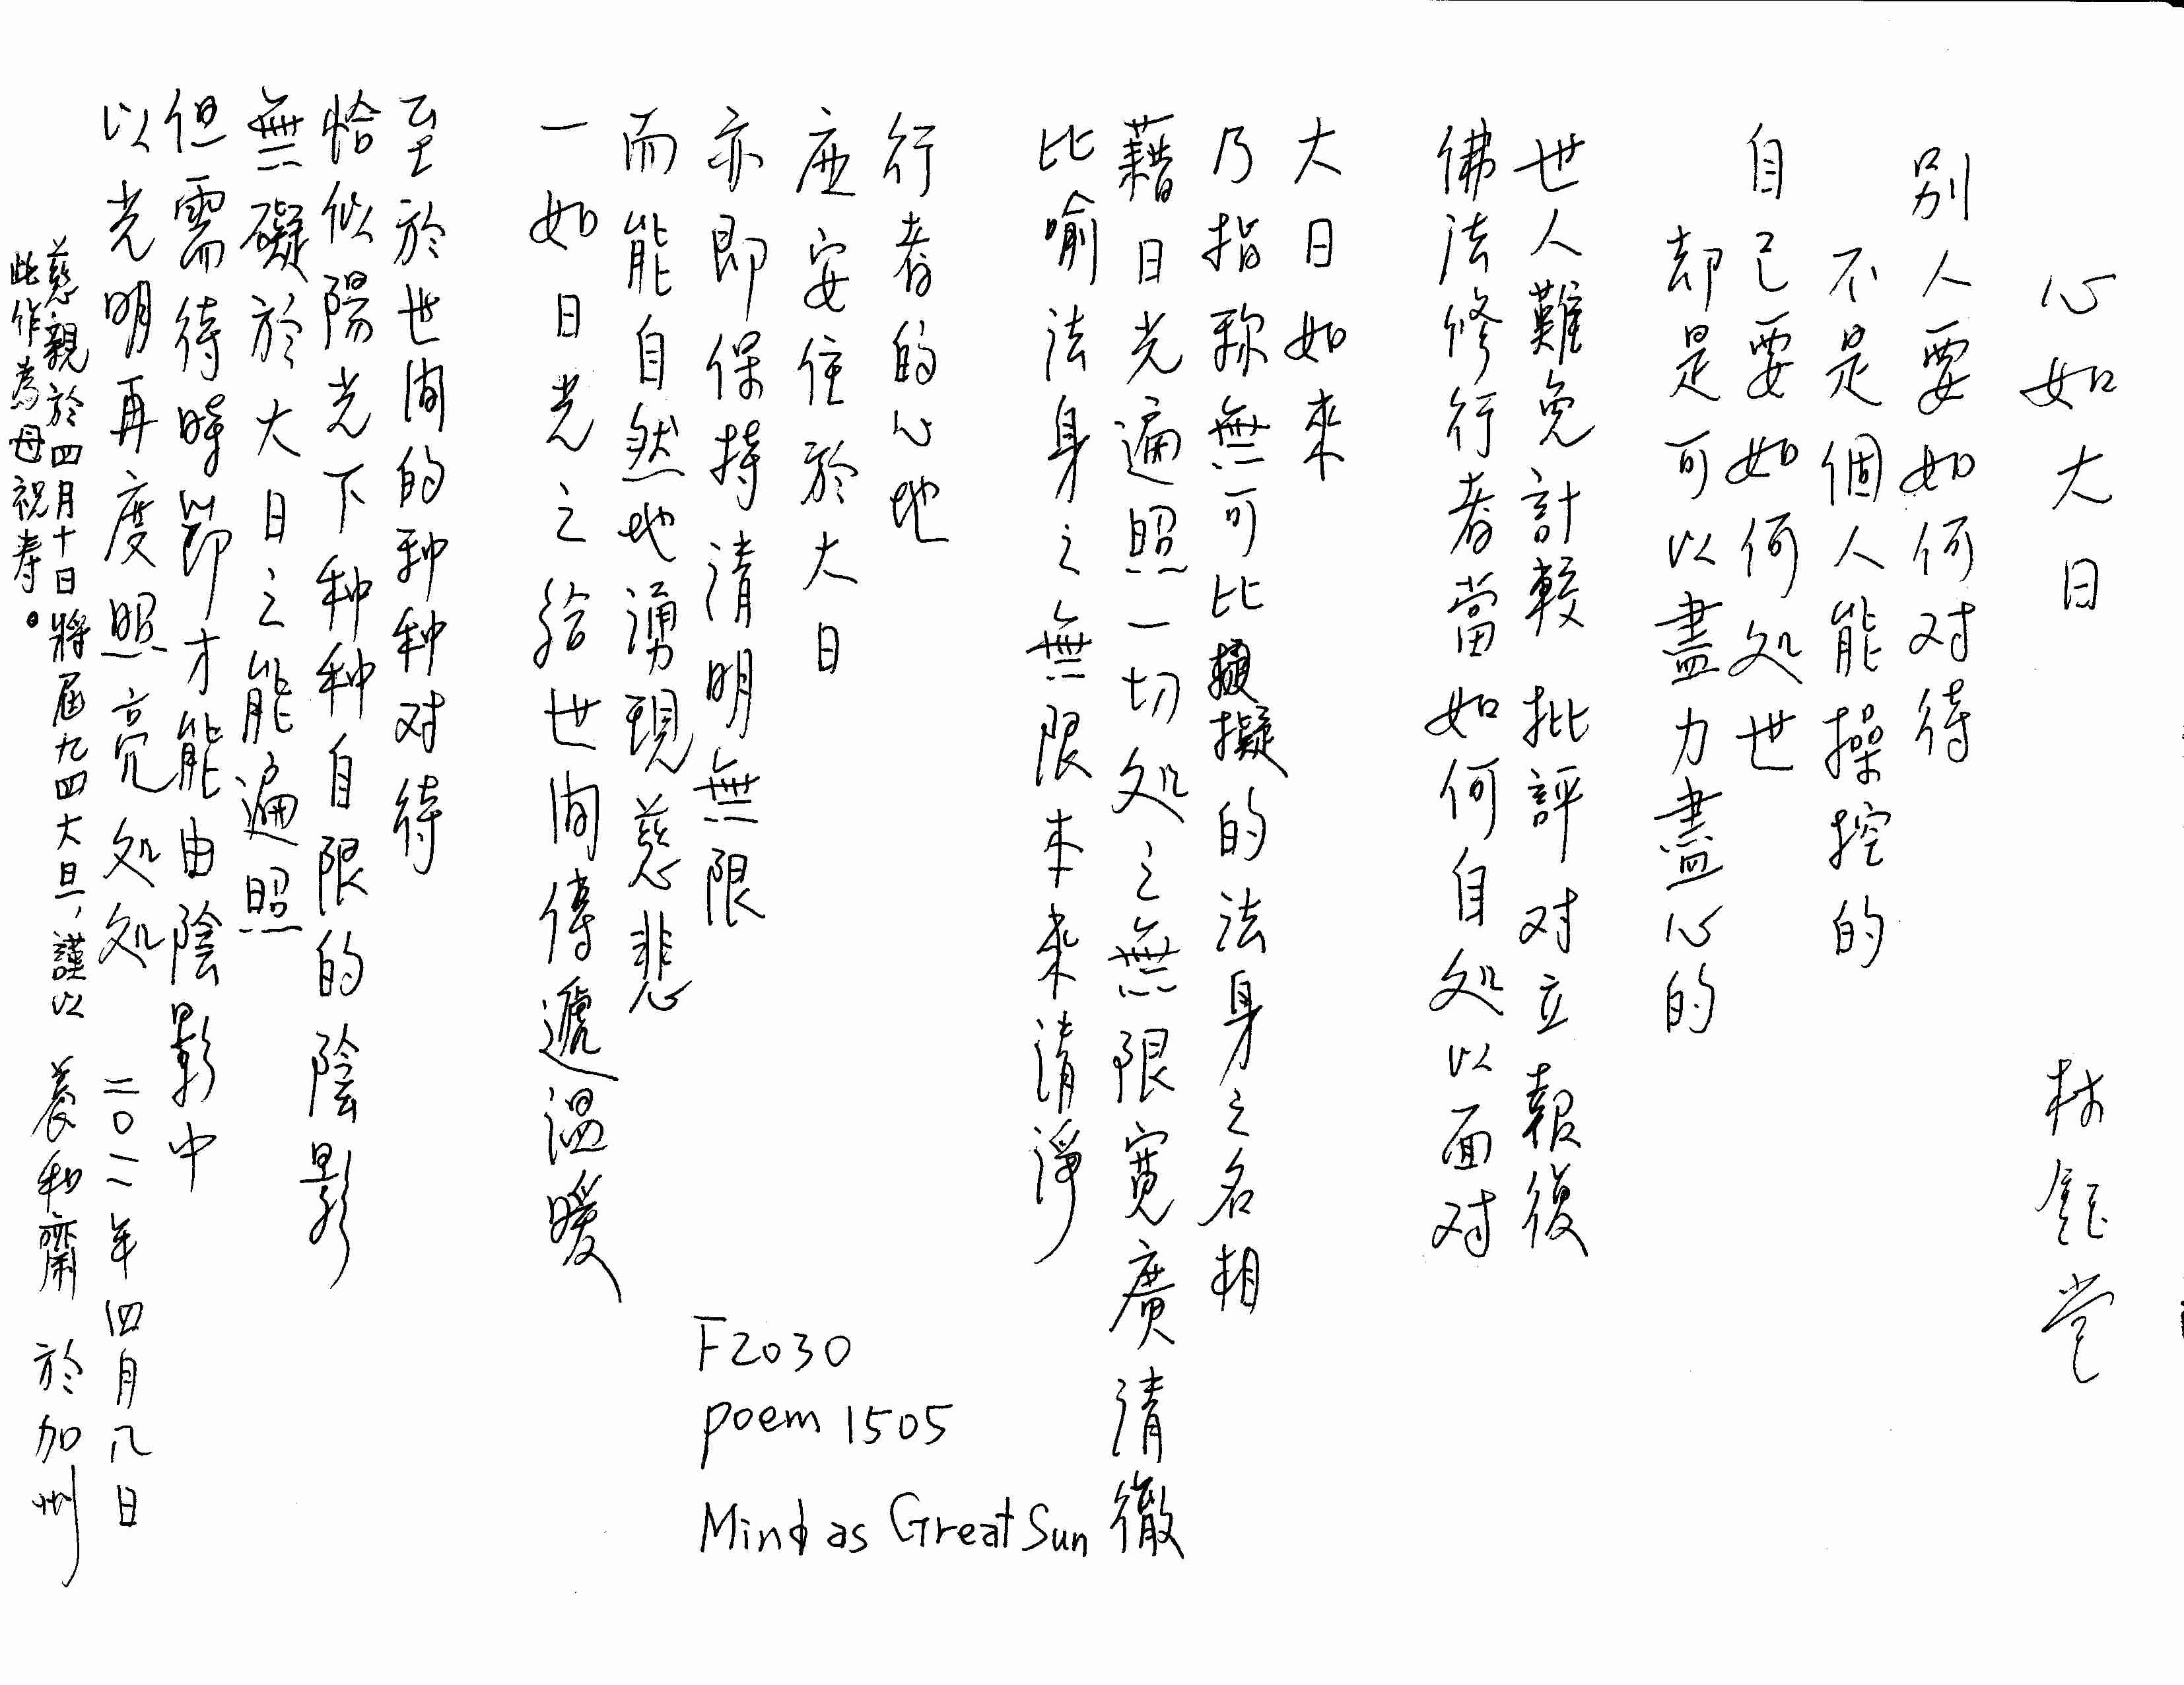 心如大日　林鈺堂
別人要如何对待
不是個人能操控的
自己要如何处世
却是可以盡力盡心的
世人難免計較 批評对立報復
佛法修行者當如何自处以面对
大日如來
乃指稱無可比擬的法身之名相
藉日光遍照一切处之無限寬廣清徹
比喻法身之無限本來清淨
行者的心地
应安住於大日
亦即保持清明無限
而能自然地湧現慈悲
一如日光之給世间傳遞温暖
至於世间的种种对待
恰似陽光下种种自限的陰影
無礙於大日之能遍照
但需待時節才能由陰影中
以光明再度照亮处处
二〇一二年四月八日
慈親於四月十日將屆九四大旦，謹以
此作為母祝寿。
養和齋 於加州
F2030
poem 1505
Mind as Great Sun